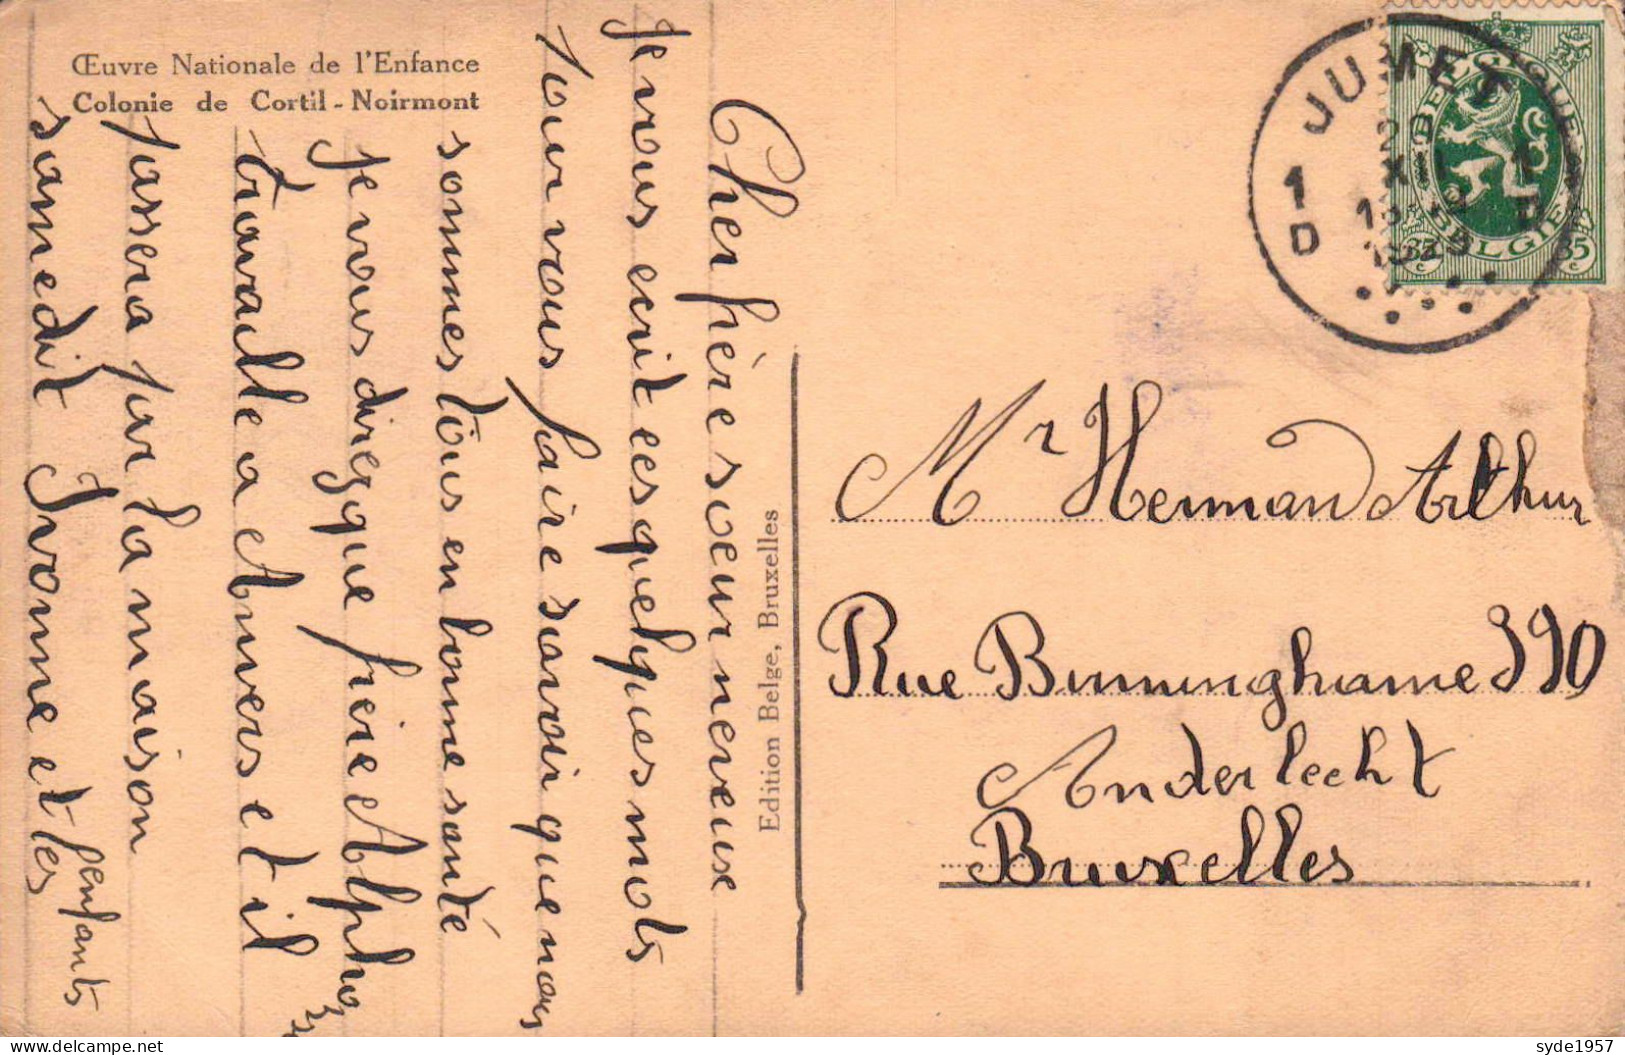 Œuvre Nationale de l'Enfance
Colonie de Cortil-Noirmont
Cher frère soeur neveuse
Je vous ecrit ces quelques mots
pour vous faire savoir que nous
sommes tous en bonne santé
Je vous direz que frère Alpho
travaille a Anvers et il
passera par la maison
samedit Ivonne et les
enfants
Edition Belge, Bruxelles
JUMET
1 D
1 D
BELGIQUE
BELGIE
35 c
35 c
Mr Herman Arthur
Rue Birminghame 390
Anderlecht
Bruxelles
syde1957